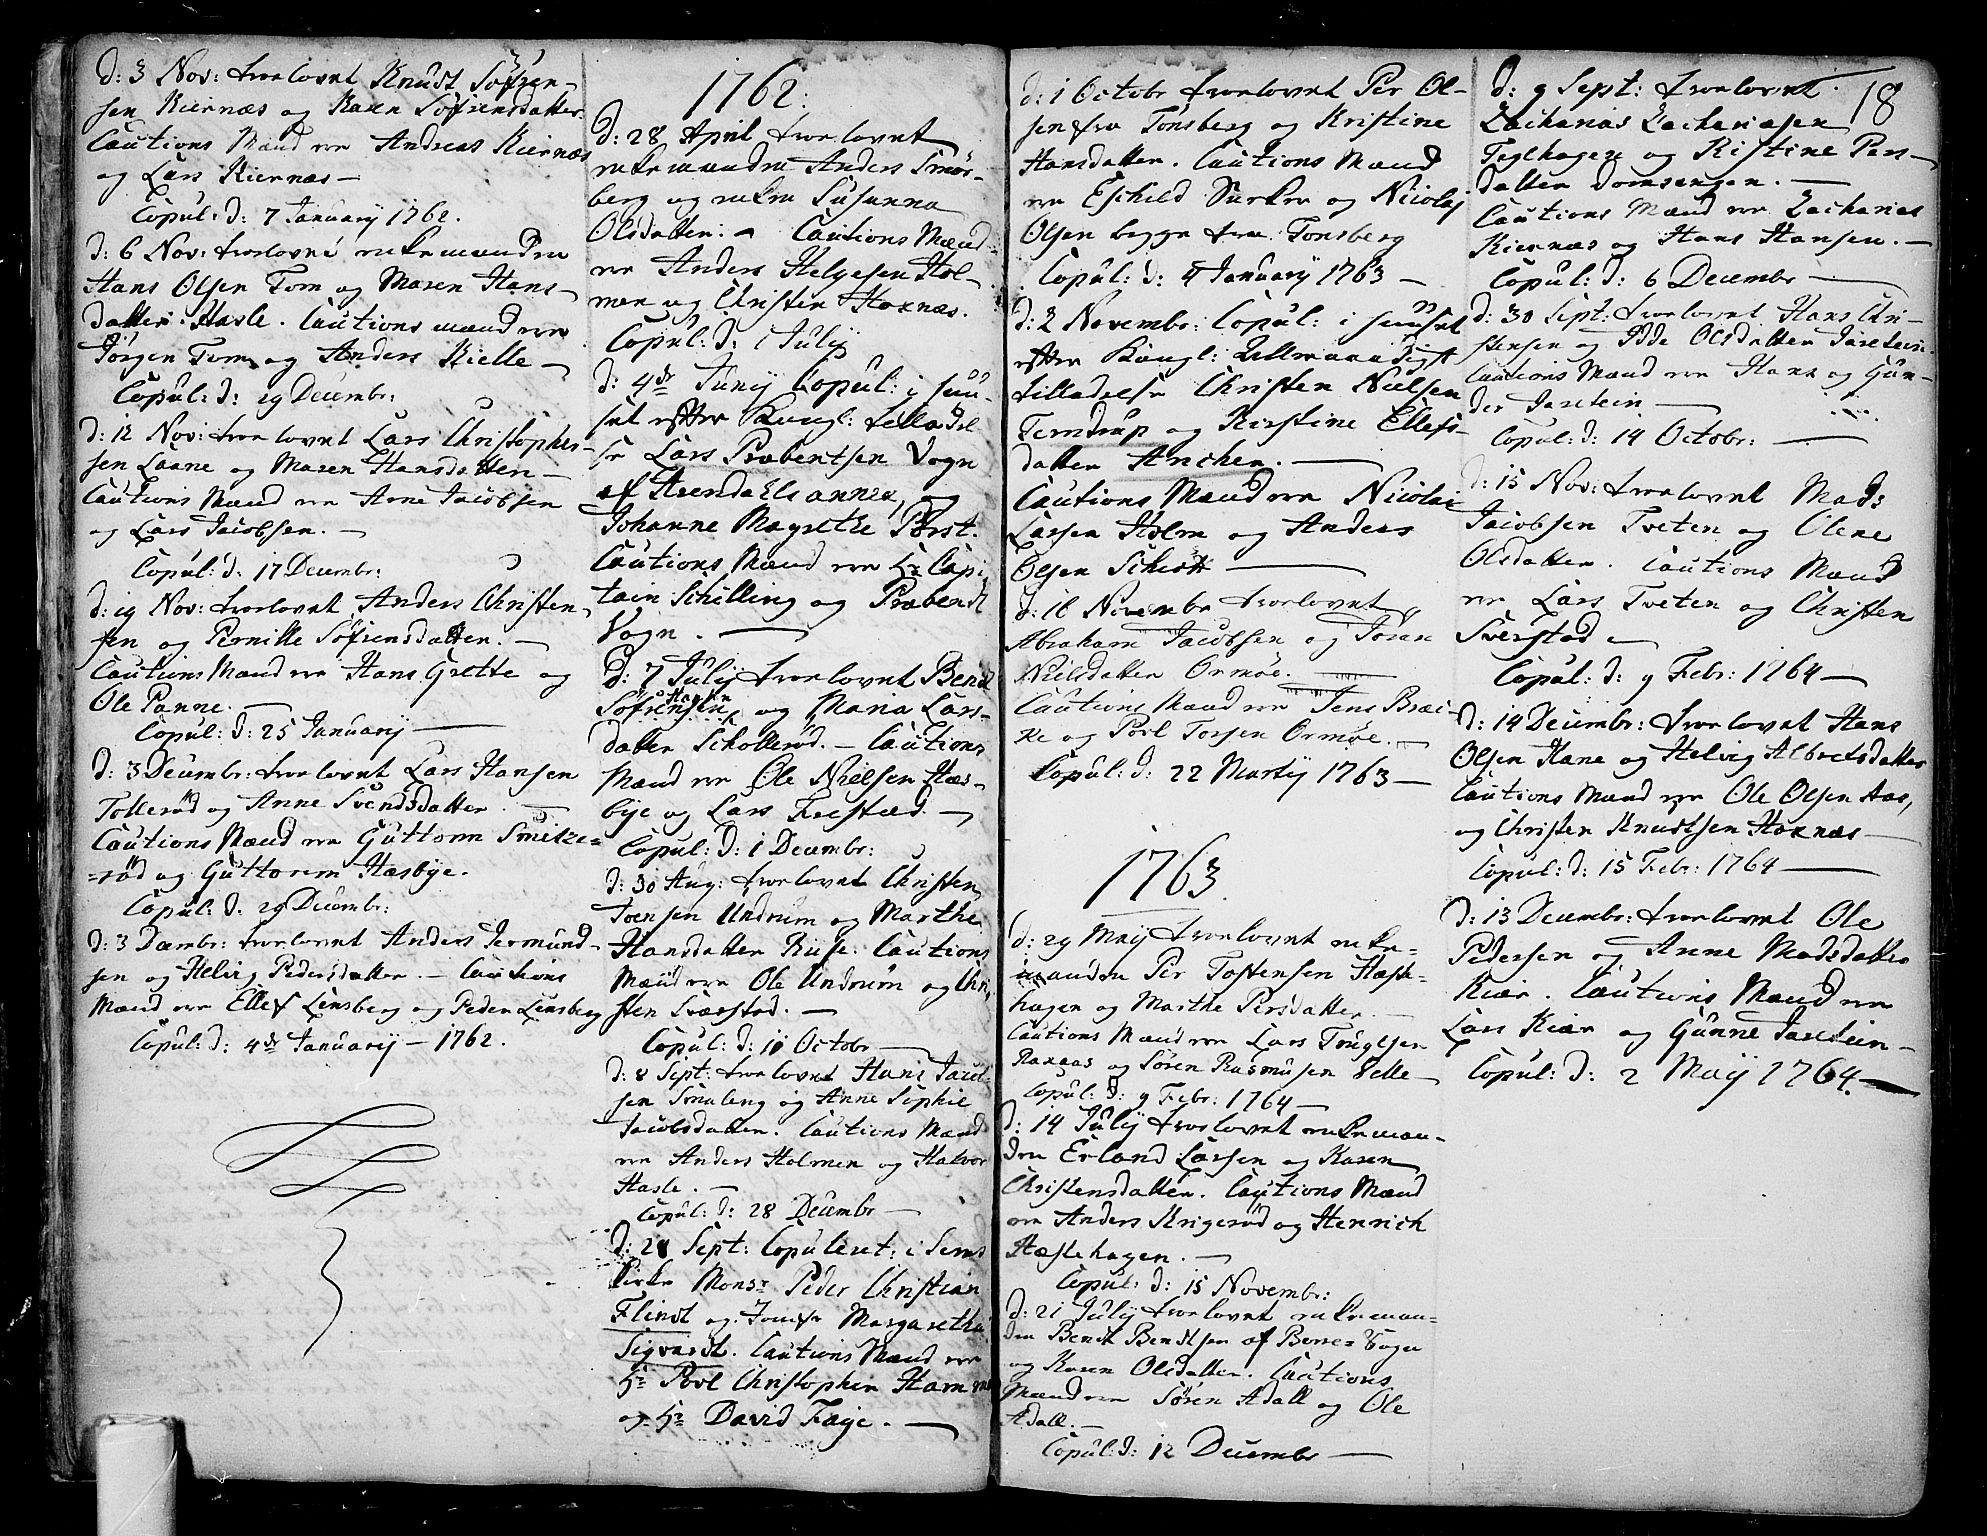 d: 3 Nov: trorlovet Knudt Söfren-
sen Kiernæs og Karen Söfrensdatter
Cautions Mænd ere Andreas Kiernæs
og Lars Kiernæs —
Copul: d: 7 January 1762.
d: 6 Nov: trorlovet enkemanden
Hans Olsen Tom og Maren Hans-
datter Hasle. Cautions mænd ere
Jörgen Tom og Anders Kielle —
Copul: d: 29 Decembr:
d: 12 Nov: trorlovet Lars Christopher-
sen Laane og Maren Hansdatter —
Cautions Mænd ere Arne Jacobsen
og Lars Jacobsen. —
Copul: d: 17 Decembr:
d: 19 Nov: trorlovet Anders Christen-
sen og Pernille Söfrensdatter. —
Cautions Mænd ere Hans Grette og
Ole Panne. —
Copul: d: 25 January —
d: 3 Decembr: trorlovet Lars Hansen
Tolleröd og Anne Svendsdatter —
Cautions Mænd ere Guttorm Smitze=
=röd og Guttorm Hæsbye.
Copul: d: 29 Decembr:
d: 3 Dæmbr: trorlovet Anders Jermund-
sen og Helvig Pedersdatter. — Cautions
Mænd ere Ellef Linsberg og Peder Linsberg
Copul: d: 4de January — 1762.
1762:
d: 28 April trorlovet
enkemanden Anders Smörs-
berg og enken Susanna
Olsdatter. — Cautions Mænd
ere Anders Helgesen Hol-
men og Christen Hoxnæs.
Copul: d: 1 July
d: 4de Juny Copul: i huu-
set efter Kongl: Tilladel
se Lars Præbentsen Vogn
af Arendals annex, og
Johanne Magrethe Pörst.
Cautions Mænd ere Hr Capi-
tain Schilling og Præbendt
Vogn. —
d: 7 July trorlovet Bendt
Hansen
Söfrensen og Maria Lars-
datter Scholleröd. — Cautions
Mænd ere Ole Nielsen Hæs-
bye og Lars Frestæd. —
Copul: d: 1 Decembr:
d: 30 Aug: trorlovet Christen
Iversen Undrum og Marthe
Hansdatter Ruse. Cautions
Mænd ere Ole Undrum og Chri
sten Sværstad. —
Copul: d: 11 Octobr —
d: 8 Sept: trorlovet Hans Jacob-
sen Smaleng og Anne Sophie
Jacobsdatter. Cautions Mænd
ere Anders Holmen og Halvor
Hasle. —
Copul: d: 28 Decembr —
d: 28 Sept: Copuleret: i Sems
kirke Monsr Peder Christian
Flindt og Jomfr Margaretha
Sigvardt. Cautions Mænd ere
Hr Povl Christopher Hammer
og Hr David Faye. —
d: 1 Octobr trorlovet Per Ol-
sen fra Tonsberg og Kristine
Hansdatter. Cautions Mænd
ere Eschild Surker og Nicolaj
Olsen begge fra Tonsberg
Copul: d: 4 January 1763 —
d: 2 Novembr: Copul: i huuset
efter Kongl: Allernaadigst
tilladelse Christen Nielsen
Terndrup og Kirstine Ellefs-
datter Anchen. —
Cautions Mænd ere Nicolai
Larsen Holm og Anders
Olsen Schiött —
d: 16 Novembr trorlovet
Abraham Jacobsen og Joren
Nielsdatter Ormöe. —
Cautions Mænd ere Jens Bræc-
ke og Povl Torsen Ormöe. —
Copul: d: 22 Marty 1763 —
1763.
d: 29 May trorlovet enke=
manden Per Tostensen Hæste-
hagen og Marthe Persdatter. —
Cautions Mænd ere Lars Trugelsen
Ramnas og Sören Rasmusen Velle
Copul: d: 9 Febr: 1764 —
d: 14 July trorlovet enkeman-
den Erland Larsen og Karen
Christensdatter. Cautions Mænd
ere Anders Krigeröd og Henrich
Hæstehagen. —
Copul: d: 15 Novembr:
d: 21 July trorlovet enkeman-
den Bendt Bendtsen af Borre=Sogn
og Karen Olsdatter. Cautions
Mænd ere Sören Adall og Ole
Adall. —
Copul: d: 12 Decembr —
18
d: 9 Sept: trorlovet
Zacharias Zachariasen
Teglhagen og Kistine Pers-
datter Domsengen. —
Cautions Mænd ere Zacharias
Kiernæs og Hans Hansen. —
Copul: d: 6 Decembr —
d: 30 Sept: trorlovet Hans Chri-
stensen og Idde Olsdatter Jarelein.
Cautions Mænd ere Hans og Gun-
der Jarelein —
Copul: d: 14 Octobr: —
d: 15 Nov: trorlovet Mads
Jacobsen Tveten og Olene
Olsdatter. Cautions Mænd
ere Lars Tveten og Christen
Sverstad —
Copul: d: 9 Febr: 1764 —
d: 14 Decembr: trorlovet Hans
Olsen Hane og Helvig Albretsdatter
Cautions Mænd ere Ole Olsen Aas,
og Christen Knudtsen Hoxnæs —
Copul: d: 15 Febr: 1764 —
d: 13 Decembr: trorlovet Ole
Pedersen og Anne Madsdatter
Kiær. Cautions Mænd ere
Lars Kiær og Gunne Jarelein —
Copul: d: 2 May 1764. —